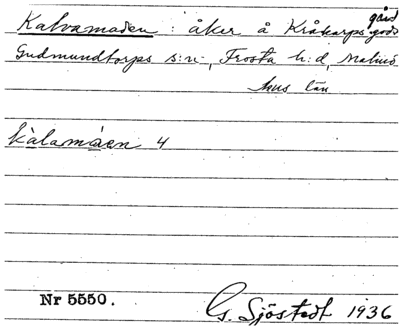 Kalvamaden : åker å Kråkarps gård gods
Gudmundtorps s:n, Frosta h:d, Malmö
hus län
kàlamáen 4
Nr 5550.
G. Sjöstedt 1936